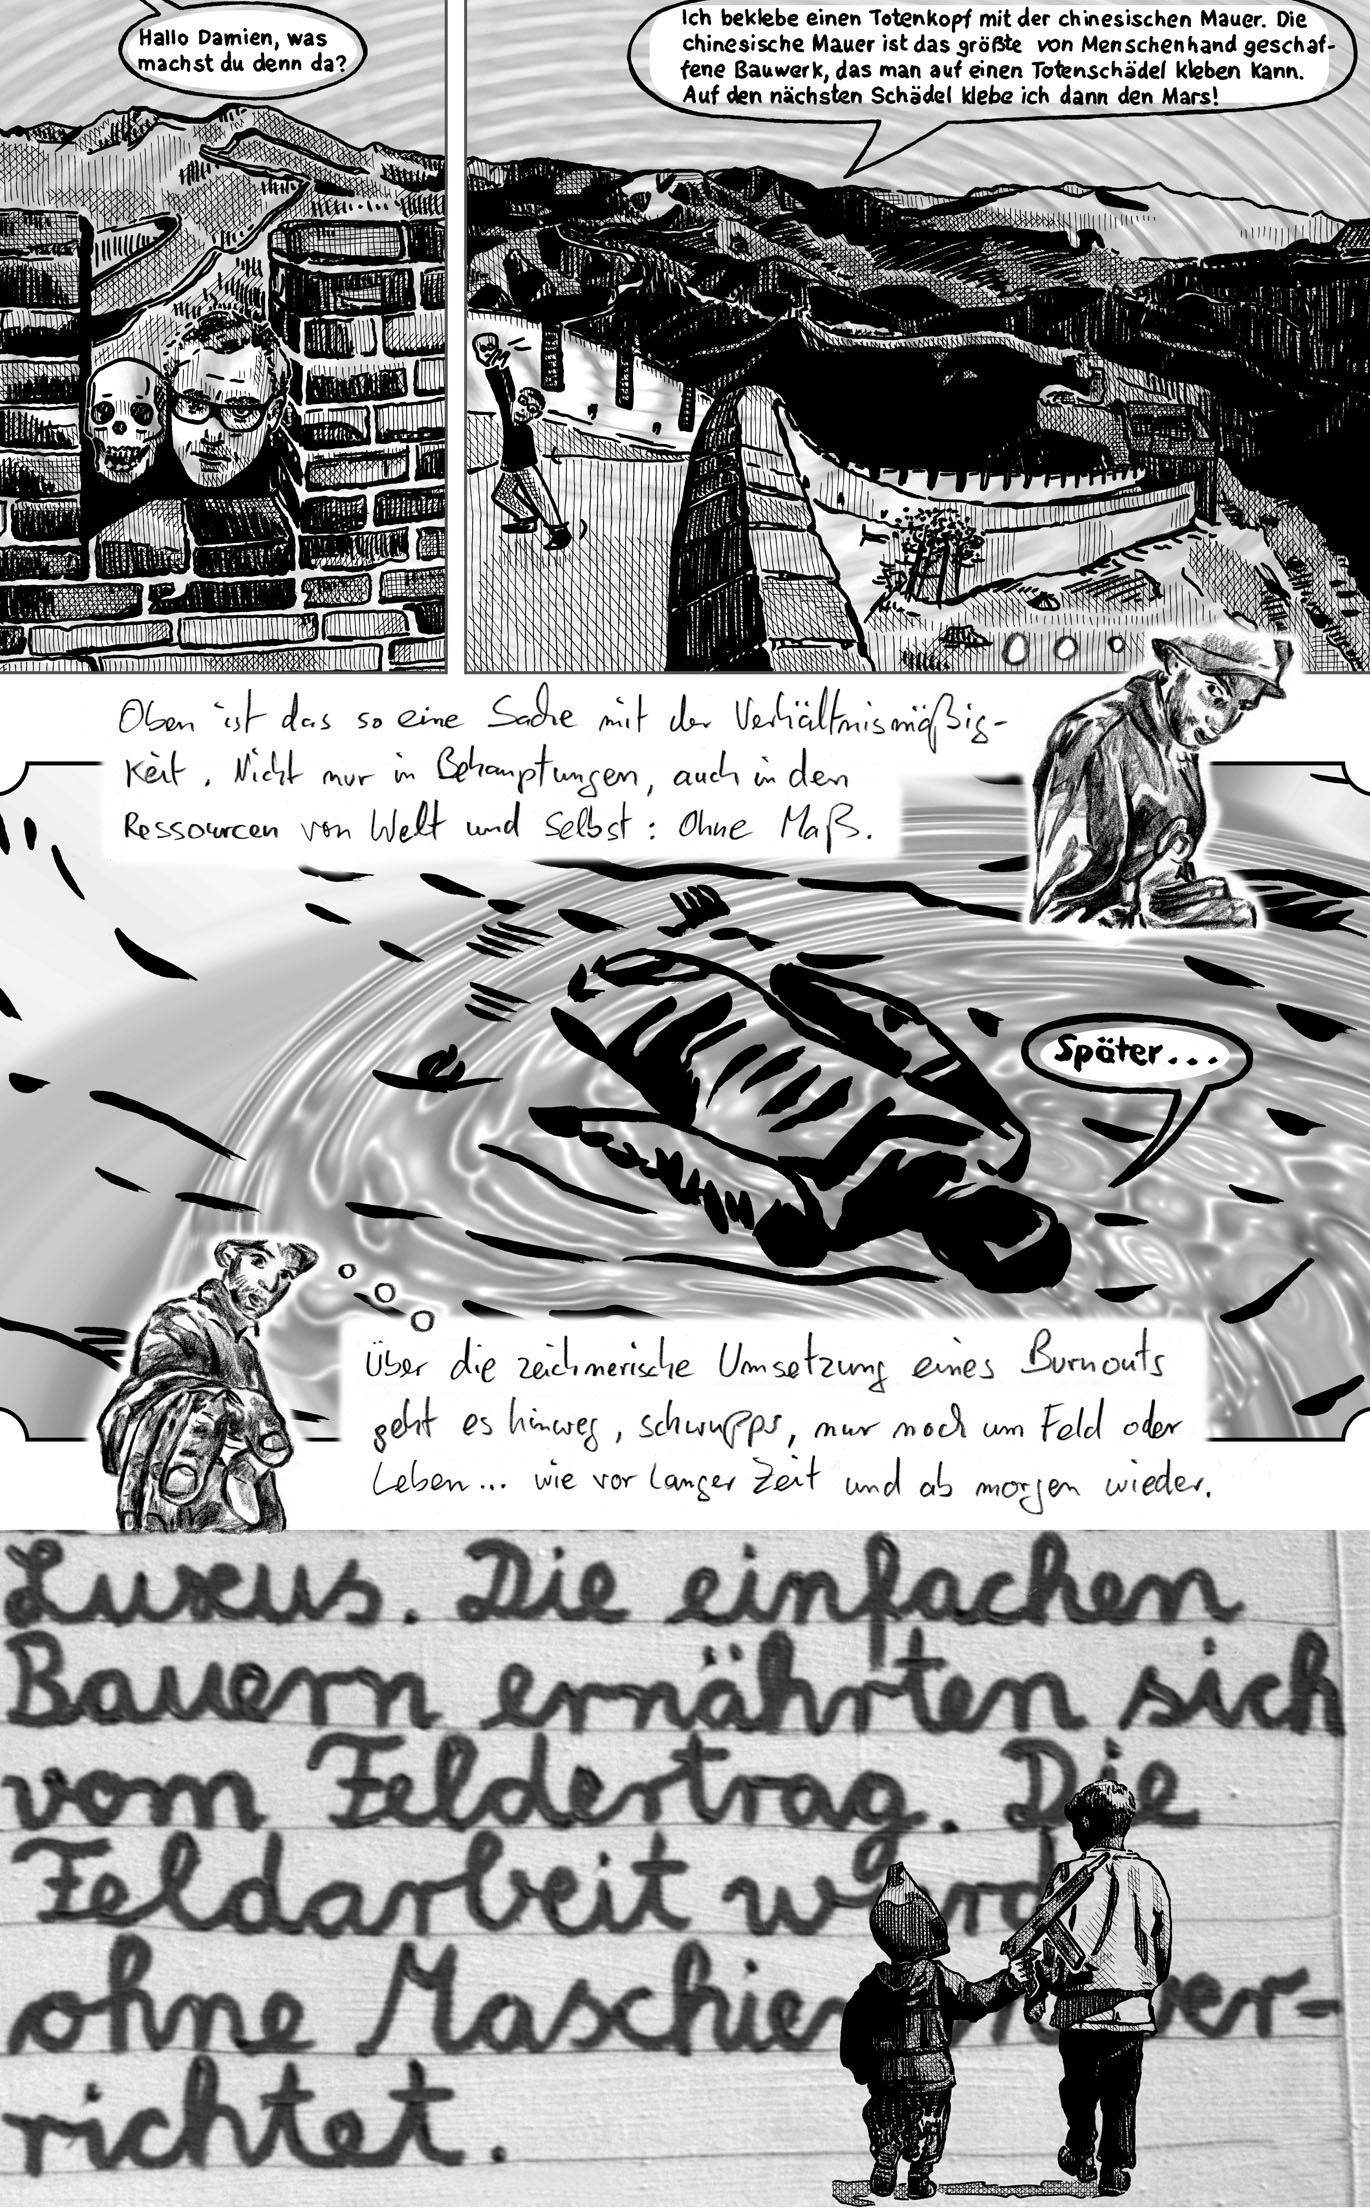 Hallo Damien, was
machst du denn da?
Ich beklebe einen Totenkopf mit der chinesischen Mauer. Die
chinesische Mauer ist das größte von Menschenhand geschaf-
fene Bauwerk, das man auf einen Totenschädel kleben kann.
Auf den nächsten Schädel klebe ich dann den Mars!
Oben ist das so eine Sache mit der Verhältnismäßig-
keit. Nicht nur in Behauptungen, auch in den
Ressourcen von Welt und Selbst: Ohne Maß.
Später...
Über die zeichnerische Umsetzung eines Burnouts
geht es hinweg, schwupps, nur noch um Feld oder
Leben... wie vor langer Zeit und ab morgen wieder.
Luxus. Die einfachen
Bauern ernährten sich
vom Feldertrag. Die
Feldarbeit
ohne ver-
richtet.